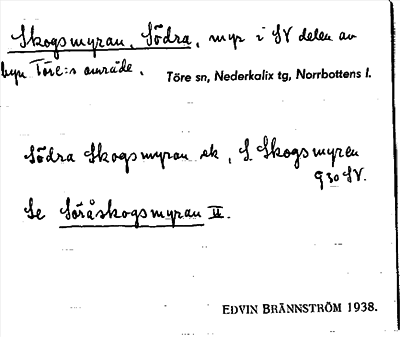 Skogsmyran, Södra, myr i SV delen av
byn Töre:s område.
Töre sn, Nederkalix tg, Norrbottens l.
Södra Skogsmyran ek, S. Skogsmyren
g 30 SV.
Se Söråskogsmyran II.
EDVIN BRÄNNSTRÖM 1938.